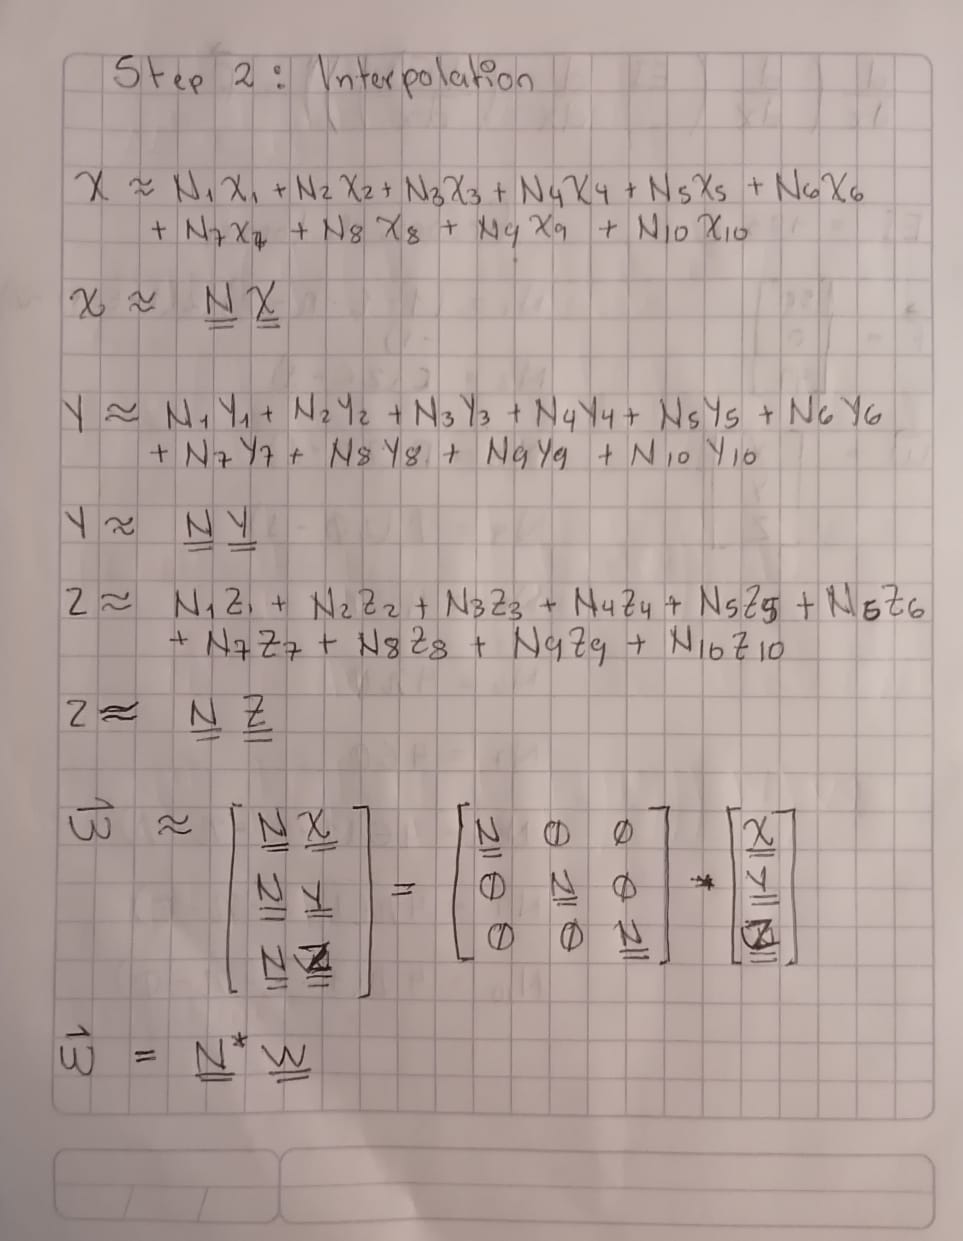 Step 2: Interpolation
X ≈ N₁X₁ + N₂X₂ + N₃X₃ + N₄X₄ + N₅X₅ + N₆X₆
+ N₇X₇ + N₈X₈ + N₉X₉ + N₁₀X₁₀
X ≈ N X
Y ≈ N₁Y₁ + N₂Y₂ + N₃Y₃ + N₄Y₄ + N₅Y₅ + N₆Y₆
+ N₇Y₇ + N₈Y₈ + N₉Y₉ + N₁₀Y₁₀
Y ≈ N Y
Z ≈ N₁Z₁ + N₂Z₂ + N₃Z₃ + N₄Z₄ + N₅Z₅ + N₆Z₆
+ N₇Z₇ + N₈Z₈ + N₉Z₉ + N₁₀Z₁₀
Z ≈ N Z
≈ [N X; N Y; N Z] = [N 0 0; 0 N 0; 0 0 N] * [X; Y; Z]
= N*